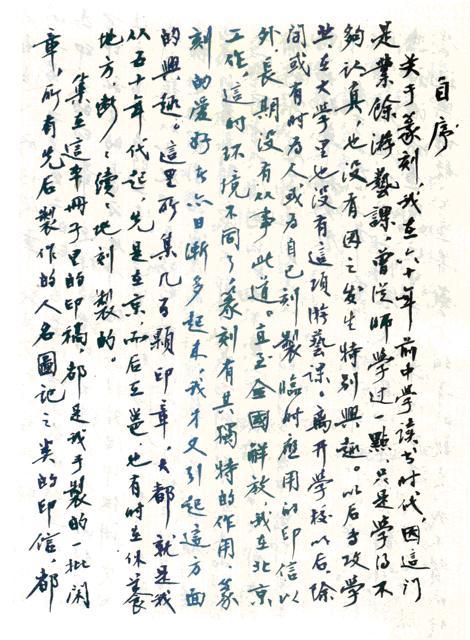 自序
关于篆刻,我在六十年前中学读书时代因这门
是業餘游藝課,曾從师学过一點,只是学得不
夠认真,也没有因之发生特别興趣。以后专攻学
在大学里也没有這項游藝课。离开学校以后,除
间或有时为人或为自己刻製臨时應用的印信以
外,長期没有从事此道。直至全國解放,我在北京
工作,這时环境不同了,篆刻有其獨特的作用,篆
刻的爱好者亦日漸多起来,我才又引起這方面
的興趣。這里所集几百顆印章,大都就是我
从五十年代起,先是在京而后在邕,也有时在休養
地方断々續々地刻製的。
集在這本冊子里的印稿,都是我手製的一批闲
章,所有先后製作的人名圖記之类的印信,都